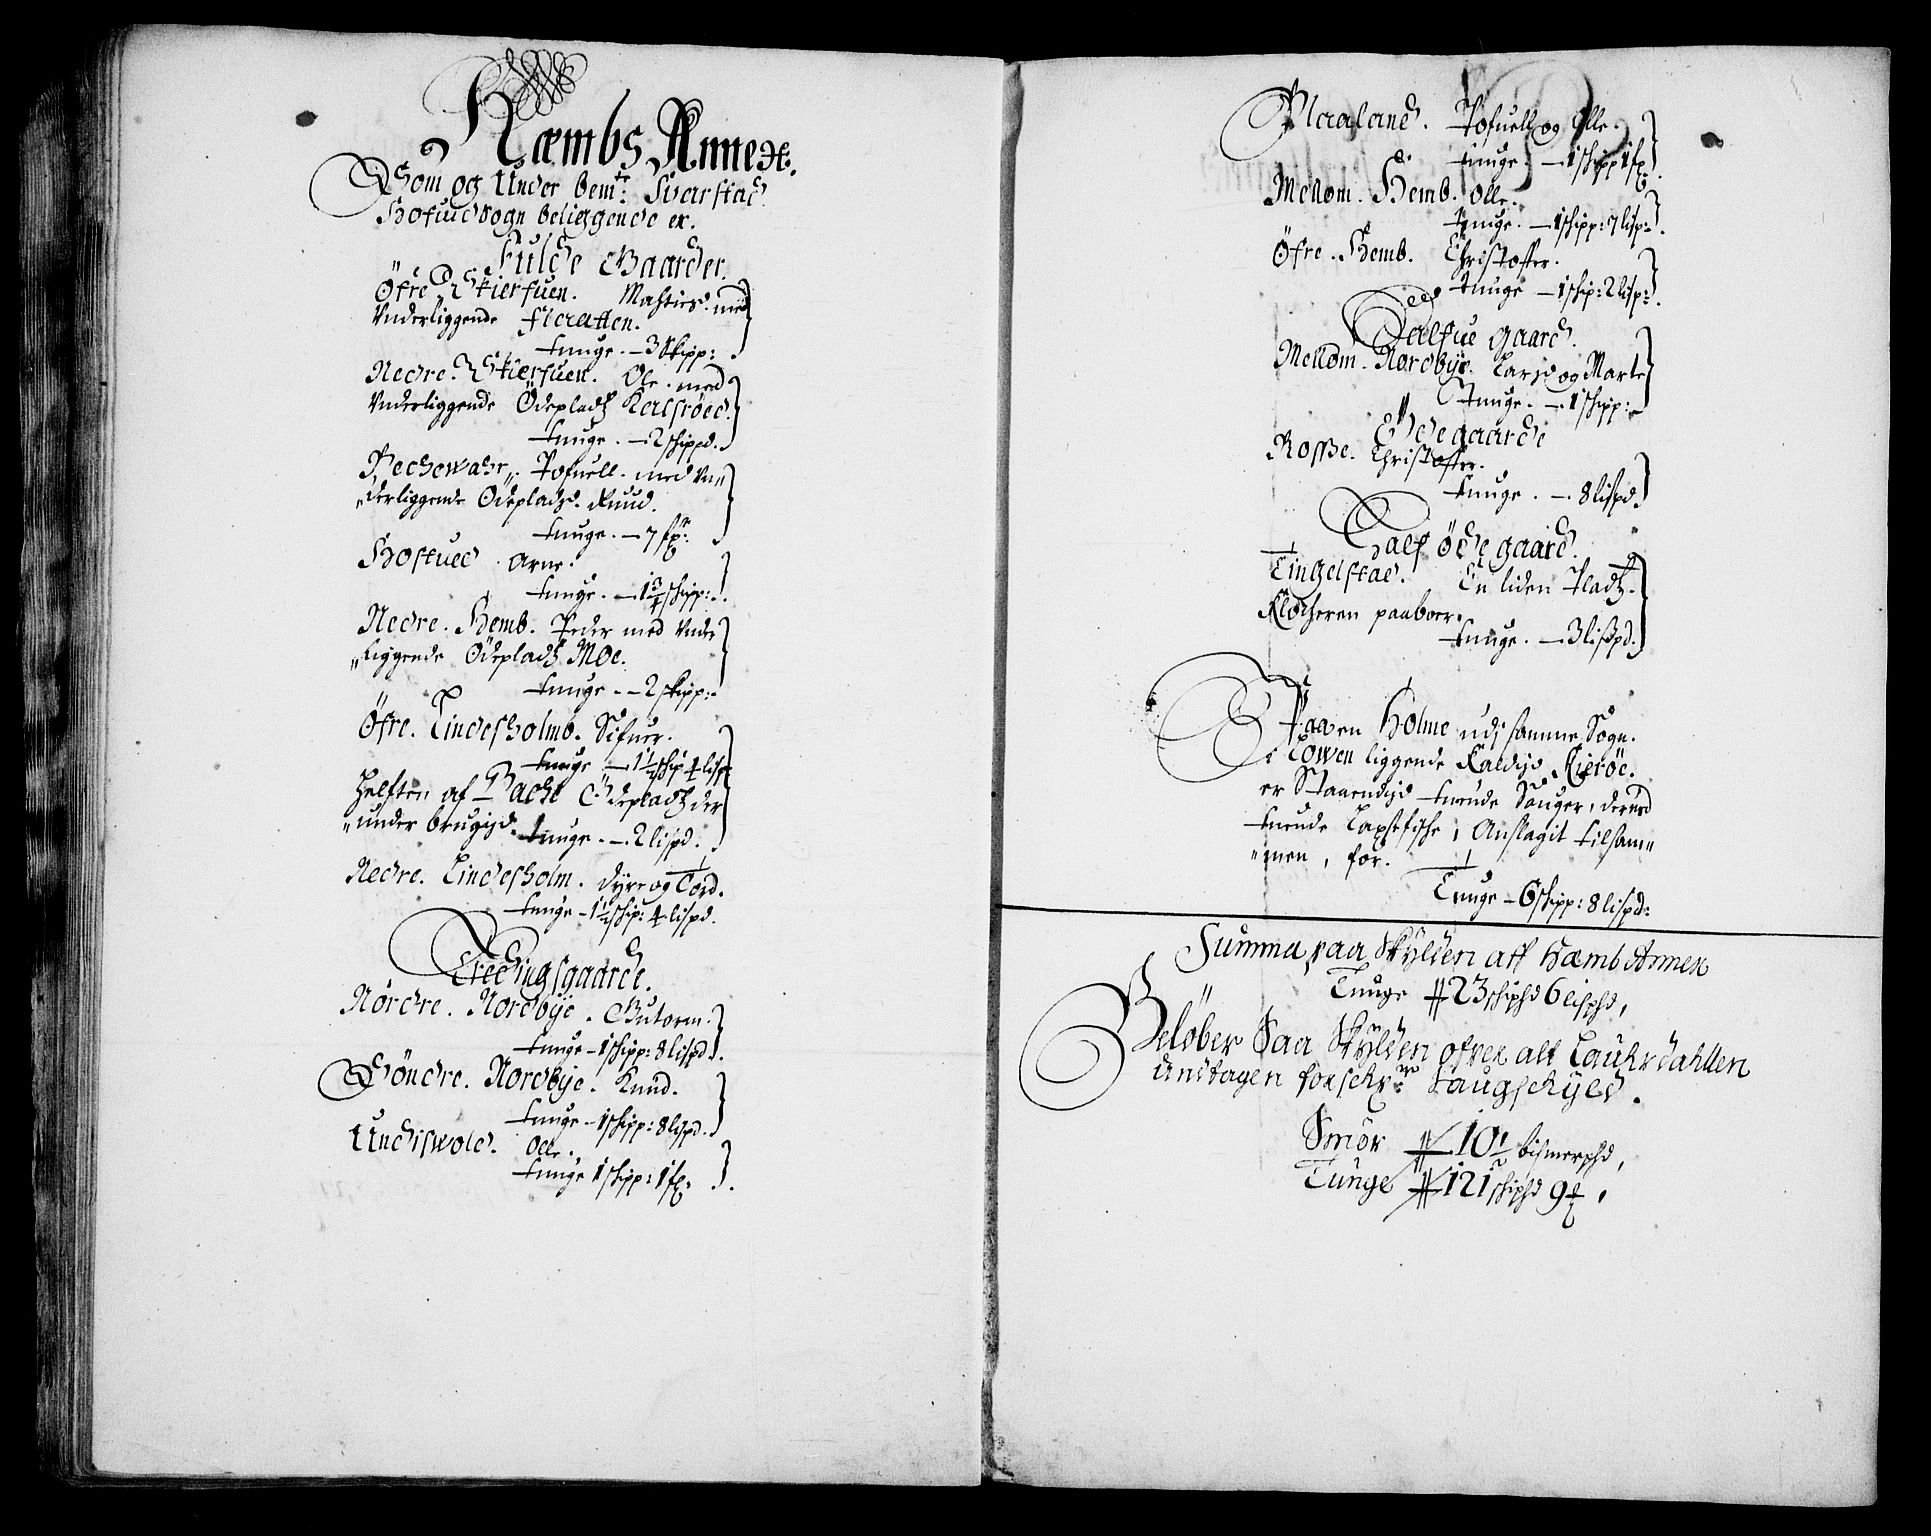 Hæmbs Annex.
Som og Under bemt: Svarstad
Hofuedsogn beliggende er.
Fulde Gaarder.
Öfre Skierfuen. Mathies. med
Vnderliggende Floatten.
Tunge. – 3 Skipp:
Nedre. Skierfuen. Ole. med
Vnderliggende Ödepladtz Kalsröed.
Tunge. – 2 schippd.
Bechewahr. Pofuell. med Vn„
„derliggende Ödepladtz. Ruud.
Tunge. – 7 fr:
Hofued. Arne.
Tunge. – 1 3/4 schipp:
Nedre. Hemb. Peder med Vnder
„liggende Ödepladtz Moe.
Tunge. – 2 skipp:
Öfre. Lindesholmb. Sifuer.
Tunge – 1 1/2 schip 4 lisp
Helften af Bache Ödepladtz der
„under brugis.
Tunge. – 2 lispd.
Nedre. Lindesholm. Dyre og Tord.
Tunge – 1 1/2 schip: 4 lispd.
Tredingsgaarde.
Nördre. Nordbye. Gutorm.
Tunge – 1 schipp: 8 lispd.
Söndre. Nordbye. Knud.
Tunge – 1 schipp: 8 lispd.
Undiswold. Olle.
Tunge 1 schipp: 1 fr:
Maaland. Pofuell og Olle.
Tunge. – 1 schipp 1 fr
Mellom. Hemb. Olle.
Tunge. – 1 schipp: 7 lisp:
Öfre. Hemb. Christoffer.
Tunge – 1 schip: 2 lisp:
Halfue gaard.
Mellom. Nordbye. Lars og Marte
Tunge. – 1 schipp:
Ödegaarde
Rosse. Christoffer.
Tunge. – 8 lispd
Half ödegaard.
Tingelstad. En liden Pladtz.
Klocheren paaboer.
Tunge. – 3 lispd.
Paa en Holme udj samme Sogn.
i Lowen liggende Kaldis Kieröe.
er Staaendis tuende Sauger, derued
tuende Laxefische, Anslagit tilsam„
„men, for.
Tunge – 6 schipp: 8 lispd:
Summa paa Skylden aff Hæmb Annex
Tunge 23 schipd 6 lispd,
Beløber Saa Skylden ofver alt Lauhrdahlen
Undtagen forschr: Saugschyld.
Smör 10 1/2 bismerpd,
Tunge 121 schipd 9 fr,